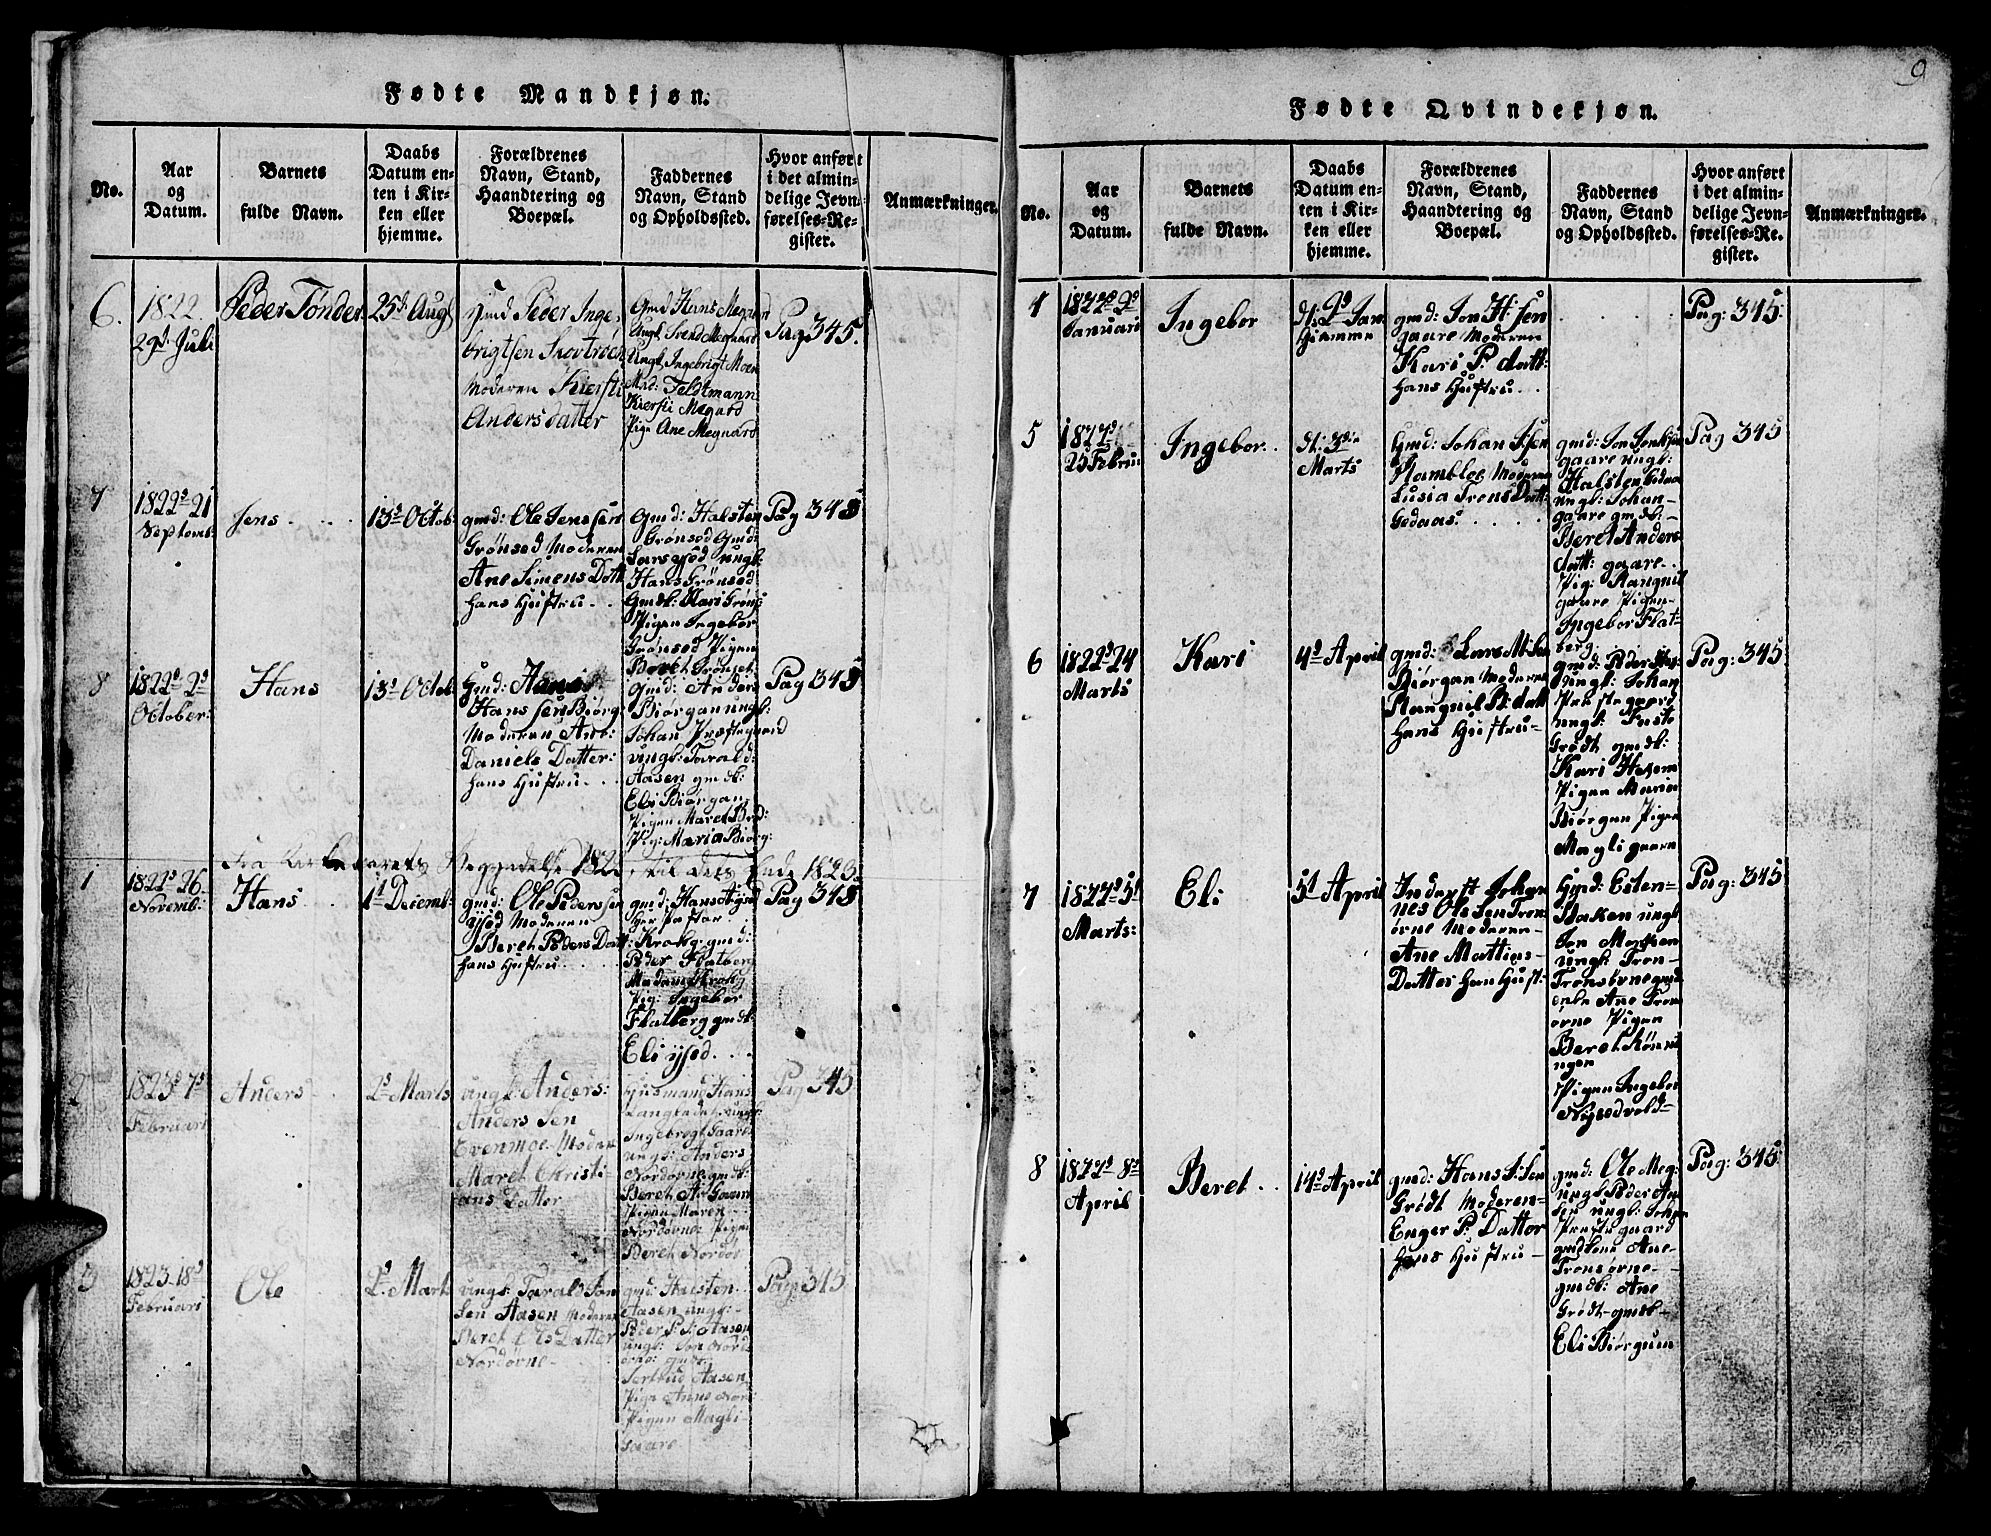 Fødte Mandkjøn.
No.
Aar
og
Datum.
Barnets
fulde Navn.
Daabs
Datum en-
ten i Kir-
ken eller
hjemme.
Forældrenes
Navn, Stand,
Haandtering og
Boepæl.
Faddernes
Navn, Stand
og Opholdssted.
Hvor anført
i det almin-
delige Jevn-
førelses-Re-
gister.
Anmærkninger.
6.
1822.
29d Juli
Peder Tønder
25d Aug
Gmd Peder Inge
brigtsen
Moderen Kiersti
Anders datter
Gmd Hans Megaard
Ungk Svend Megaard
Ungk Ingebrigt Moen
Mad: Feldtmann
Kiersti Megard
Pige Ane Megaard
Pag 345.
7
1822d 21
Septemb:
Jens
13d Octob:
gmd: Ole Jenssen
Grönsod Moderen
Ane Simens Datt
hans Hustru
Gmd: Halsten
Grönsod Gmd:
Lars ungk:
Hans Grönsod
Gmdk: Kari Gröns
Pigen Ingebor
Grönsod Pigen
Beret Grönset
Pag 345
8
1822d 2d
October:
Hans
13d Octob
Gmd: Hans
Hanssen Biörg
Moderen Ane
Daniels Datter:
hans Hustru
gmd: Anders
Biörgan ungk:
Johan Præstegaard
ungk: Tarald:
Aasen gmdk:
Eli Biörgan
Pigen Maret
Pig: Maria Biörg:
Fra Kirkeaarets Begyndelse 1822 til dets Ende 1823.
1
1822d 26
Novemb:
Hans
1d Decemb:
gmd: Ole Pederssen
ysod Moderen
Beret Peders Datt
hans Hustru
gmd: Hans
Krokg: gmd:
Peder Flatberg
Madame Krokg
Pig: Ingebor
Flatberg gmdk:
Eli ysod
Pag 345
2
1823d 7d
Februari
Anders
2d Marts
ungk: Anders:
Anders Sen
Evenmoe Moderen
Maret Christi
ans Datter
Husmand Hans
Langledet ungk:
Ingebrgt Gaare
ungk: Anders
Nordörne gmdk:
Beret A: Gaare
Pigen Maren
Nordörne Pigen
Beret Nordör
Pag 345
3
1823 18d
Februari
Ole
2d Marts
ungk: Tarald Jon
Sen Aasen Moderen
Beret Ols Datter
Nordörne
gmd: Halsten
Aasen ungk:
Peder P: S: Aasen
ungk: Jon Nord
örne: gmdk
Gertrud Aasen
Pige Anne Nord
Pigen Magli
gaare
Pag 345
9
Fødte Qvindekjøn.
No.
Aar
og
Datum.
Barnets
fulde Navn.
Daabs
Datum en-
ten i Kir-
ken eller
hjemme.
Forældrenes
Navn, Stand,
Haandtering og
Boepæl.
Faddernes
Navn, Stand
og Opholdssted.
Hvor anført
i det almin-
delige Jevn-
førelses-Re-
gister.
Anmærkninger.
4
1822d 9d
Januari
Ingebor
d: 9d Jan
Hiemme
gmd: Jon H: Sen
gaare Moderen
Kari P: datt:
hans Hustru
Pag: 345
5
1822d
25 Februa
Ingebor
d: 3d
Marts
Gmd: Johan J: Sen
Moderen
Lusia Trons Datt:
Gedaas
gmd: Jon
gaare ungk:
Halsten
ungk: Johan
gaare gmdk:
Beret Anders
datt: gaare
Pig: Rangnil
gaare Pigen
Ingebor Flat-
berg
Pag 345
6
1822d 24
Marts
Kari
4d April
gmd: Lars M: Sen
Biörgan Moderen
Rangnil P: datt
hans Hustru
gmd: Peder
ungk: Johan
Prestegaard
ungk:
Grödt gmdk:
Kari
Pigen Maria
Biörgan Pigen
Magli gaare
Pag: 345
7
1822d 5d
Marts:
Eli
5d April
Inderst Johan
nes Ole Sen Tron
örne Moderen
Ane Mattias
Datter hans Hust:
Gmd: Esten
Bakken ungk
Jon
ungk: Tron
Tronsörne gmd
Ane Tron
örne Pigen
Beret Rönni
ngen
Pigen Ingebor
Nysedvold
Pag: 345
8
1822d 8d
April
Beret
14d April
gmd: Hans J: Sen
Grödt Moderen
Enger P: Datter
hans Hustru
gmd: Ole Meg:
ungk Peder An
Sen ungk: Johan
Prestegaard
Ane
Tronsörne
gmdk: Ane
Grödt gmdk
Eli Biörgum
Pag: 345